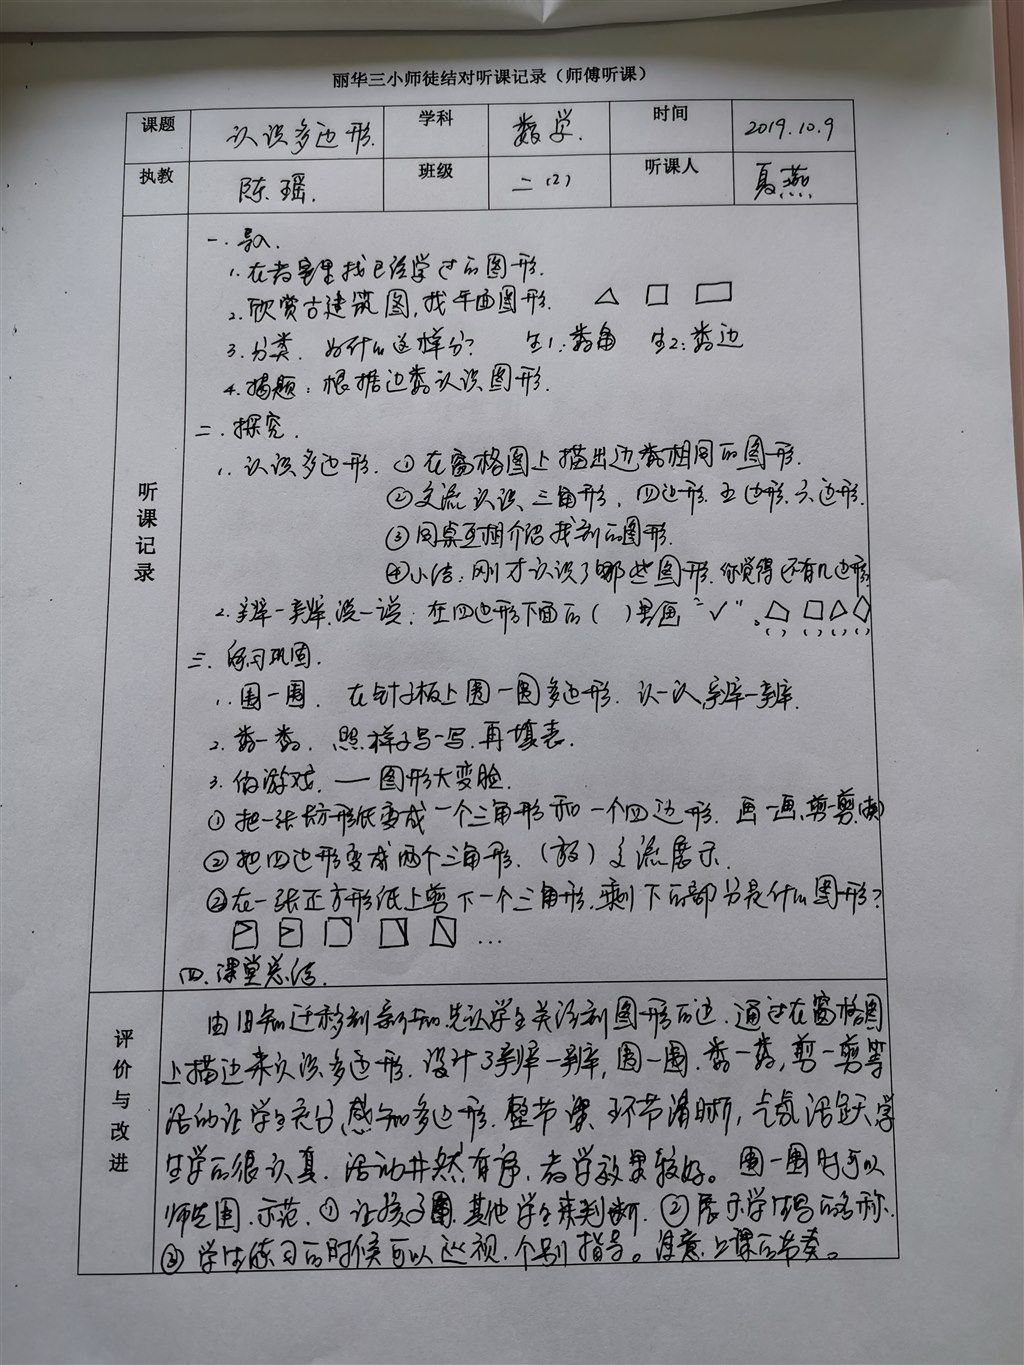 丽华三小师徒结对听课记录（师傅听课）
课题 认识多边形. 学科 数学. 时间 2019.10.9
执教 陈瑶. 班级 二(2) 听课人 夏燕
听课记录
一.导入.
1.在教室里找已经学过的图形.
2.欣赏古建筑图,找平面图形.
3.分类.为什么这样分? 生1:数角 生2:数边
4.揭题:根据边数认识图形.
二.探究.
1.认识多边形.①在窗格图上描出边数相同的图形.
②交流认识、三角形、四边形.五边形.六边形.
③同桌互相介绍找到的图形.
④小结:刚才认识了哪些图形.你觉得还有几边形
2.辨一辨.说一说:在四边形下面的( )里画"✓"。
( ) ( ) ( ) ( )
三.练习巩固.
1.围一围. 在钉子板上围一围多边形.认一认,辨一辨.
2.数一数. 照样子写一写.再填表.
3.做游戏.——图形大变脸.
①把一张长方形纸变成一个三角形和一个四边形. 画一画,剪一剪
②把四边形变成两个三角形.(放)交流展示.
③在一张正方形纸上剪下一个三角形.剩下的部分是什么图形?
...
四.课堂总结.
评价与改进
由旧知迁移到新知.先让学生关注到图形的边.通过在窗格图
上描边来认识多边形.设计了辨一辨,围一围.数一数,剪一剪等
活动让学生充分感知多边形.整节课 环节清晰,气氛活跃,学
生学的很认真.活动井然有序.教学效果较好。围一围时可以
师先围.示范.①让孩子围.其他学生来判断.②展示学生写的名称.
③学生练习的时候可以巡视.个别指导。注意上课的节奏。